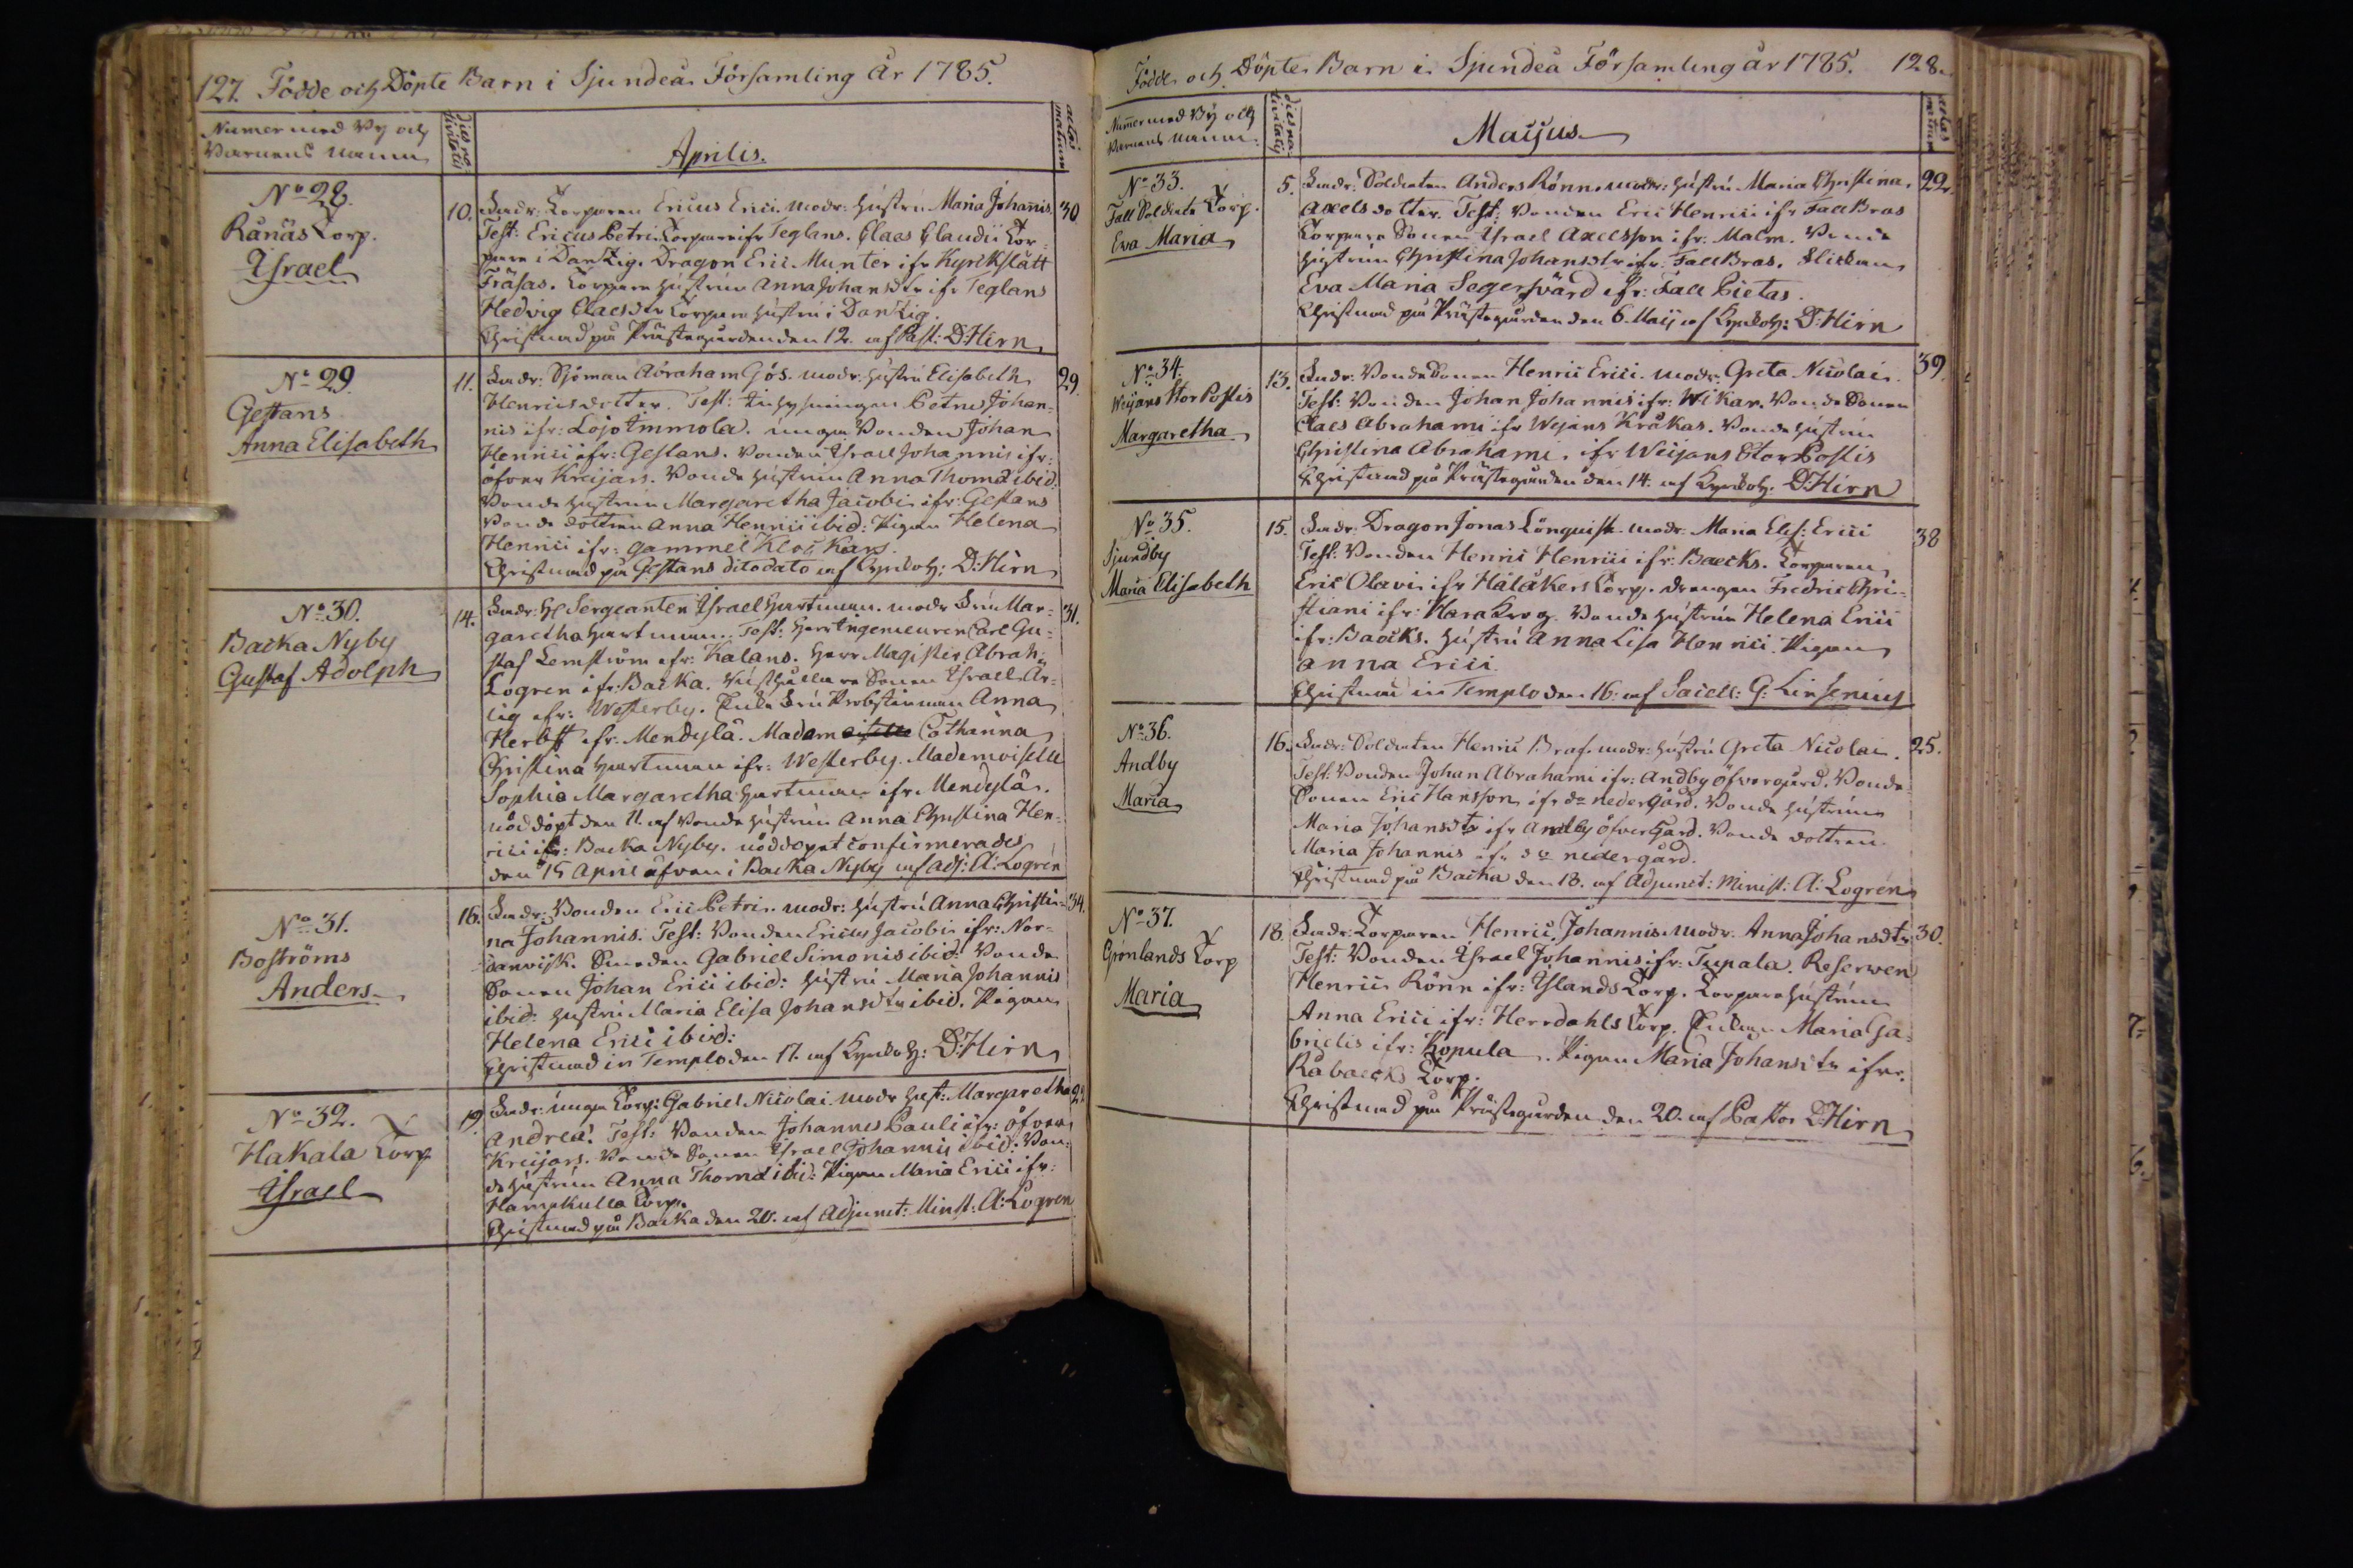 127. Födde och Döpte Barn i Sjundeå Församling år 1785.
Numer med By och
Barnens namn
dies na-
tivitatis
Aprilis.
ætas
matrum
No 28.
Rånäs Torp.
Israel
10. Fadr: Torparen Ericus Erici. modr: hustru Maria Johannis. 30
Test: Ericus Petri Torpare ifr Teglans. Claes Claudii Tor-
pare i Danzig. Dragon Eric Munter ifr Kyrkslätt
Fräsas. Torpare hustrun Anna Johansdtr ifr Teglans
Hedvig Claesdtr Torpare hustru i Danzig.
Christnad på Prästegården den 12. af Past: D: Hirn
No 29.
Gestans
Anna Elisabeth
11. Fadr: Sjöman Abraham Gös. modr: hustru Elisabeth 29.
Henricsdotter. Test: Petrus Johan-
nis ifr: Lojo Immola. unga Bonden Johan
Henrici ifr: Gestans. Bonden Israel Johannis ifr:
öfver Kreijars. Bonde hustrun Anna Thomæ ibid:
Bonde hustrun Margaretha Jacobi ifr: Gestans
Bonde dottren Anna Henrici ibid: Pigan Helena
Henrici ifr: gammel Klockars.
Christnad på Gestans dito dato af Kyrkoh: D: Hirn
No 30.
Backa Nyby
Gustaf Adolph
14. Fadr: H. Sergeanten Israel Hartman. modr Fru Mar- 31.
garetha Hartman. Test: Herr Ingenieuren Carl Gu-
staf Lemström ifr: Kalans. Herr Magister Abrah:
Logren ifr: Backa. Israel Ar-
lig ifr: Westerby. Enke Fru Probstinnan Anna
Herbst ifr. Mendylä. Madam Catharina
Christina Hartman ifr: Westerby. Mademoiselle
Sophia Margaretha Hartman ifr Mendylä.
nöddöpt den 11. af Bonde hustrun Anna Christina Hen-
rici ifr: Backa Nyby. nöddopet confirmerades
den 15 April äfven i Backa Nyby af adj: A: Logren
No 31.
Boströms
Anders
16. Fadr: Bonden Eric Petri. modr: hustru Anna Christi- 34.
na Johannis. Test: Bonden Ericus Jacobi ifr: Nor-
danvijk. Smeden Gabriel Simonis ibid: Bonde
Sonen Johan Erici ibid: hustru Maria Johannis
ibid: hustru Maria Elisa Johansdtr ibid. Pigan
Helena Erici ibid:
Christnad in Templo den 17. af Kyrkoh: D: Hirn
No 32.
Hakala Torp
Israel
19. Fadr: unga Torp: Gabriel Nicolai. modr hust: Margaretha
Andreæ. Test: Bonden Johannes Pauli ifr: öfver
Kreijars. Bonde Sonen Israel Johannis ibid: Bon-
de hustrun Anna Thomæ ibid: Pigan Maria Erici ifr:
Hampkulla Torp.
Christnad på Backa den 20. af Adjunct: Minist: A: Logren
Födde och Döpte Barn i Sjundeå Församling år 1785. 128.
Numer med By och
Barnens namn
dies na-
tivitatis
Maijus
ætas
matrum
No 33.
Fall Soldate Torp.
Eva Maria
5. Fadr: Soldaten Anders Rönn. modr: hustru Maria Christina 22.
Axelsdotter. Test: Bonden Eric Henrici ifr Fall Bras
Torpare Sonen Israel Axelsson ifr: Malm. Bonde
hustrun Christina Johansdtr ifr: Fall Bras. Flickan
Eva Maria Segersvärd ifr: Fall Pietas.
Christnad på Prästegården den 6. Maij af Kyrkoh: D: Hirn
No 34.
Weijans Stor Postis
Margaretha
13. Fadr: Bonde Sonen Henric Erici. modr: Greta Nicolai. 39.
Test: Bonden Johan Johannis ifr: Wikar. Bonde Sonen
Claes Abrahami ifr Weijans Kråkas. Bonde hustrun
Christina Abrahami. ifr Weijans Stor Postis
Christnad på Prästegården den 14. af Kyrkoh. D: Hirn
No 35.
Sjundby
Maria Elisabeth
15. Fadr: Dragon Jonas Lönquist. modr. Maria Elis: Erici 38
Test: Bonden Henric Henrici ifr: Baecks. Torparen
Eric Olavi ifr Hålåkers Torp. drengen Fredric Chri-
stiani ifr: Harakrog. Bonde hustrun Helena Erici
ifr: Baecks. hustru Anna Lisa Henrici. Pigan
Anna Erici.
Christnad in Templo den 16: af Sacell: G. Linsenius
No 36.
Andby
Maria
16. Fadr: Soldaten Henric Braf. modr: hustru Greta Nicolai. 25.
Test: Bonden Johan Abrahami ifr: Andby öfvergård. Bonde
Sonen Eric Hansson ifr do nedergård. Bonde hustrun
Maria Johansdtr ifr Andby öfvergård. Bonde dottren
Maria Johannis ifr do nedergård.
Christnad på Backa den 18. af Adjunct: Minist: A: Logren
No 37.
Grönlands Torp
Maria
18. Fadr: Torparen Henric Johannis. modr. Anna Johansdtr 30.
Test: Bonden Israel Johannis ifr: Tupala. Reserven
Henric Rönn ifr: Islands Torp. Torpare hustrun
Anna Erici ifr: Herrdahls Torp. Enkan Maria Ga-
brielis ifr: Kopula. Pigan Maria Johansdtr ifr:
Råbaecks Torp.
Christnad på Prästegården den 20. af Pastor D: Hirn